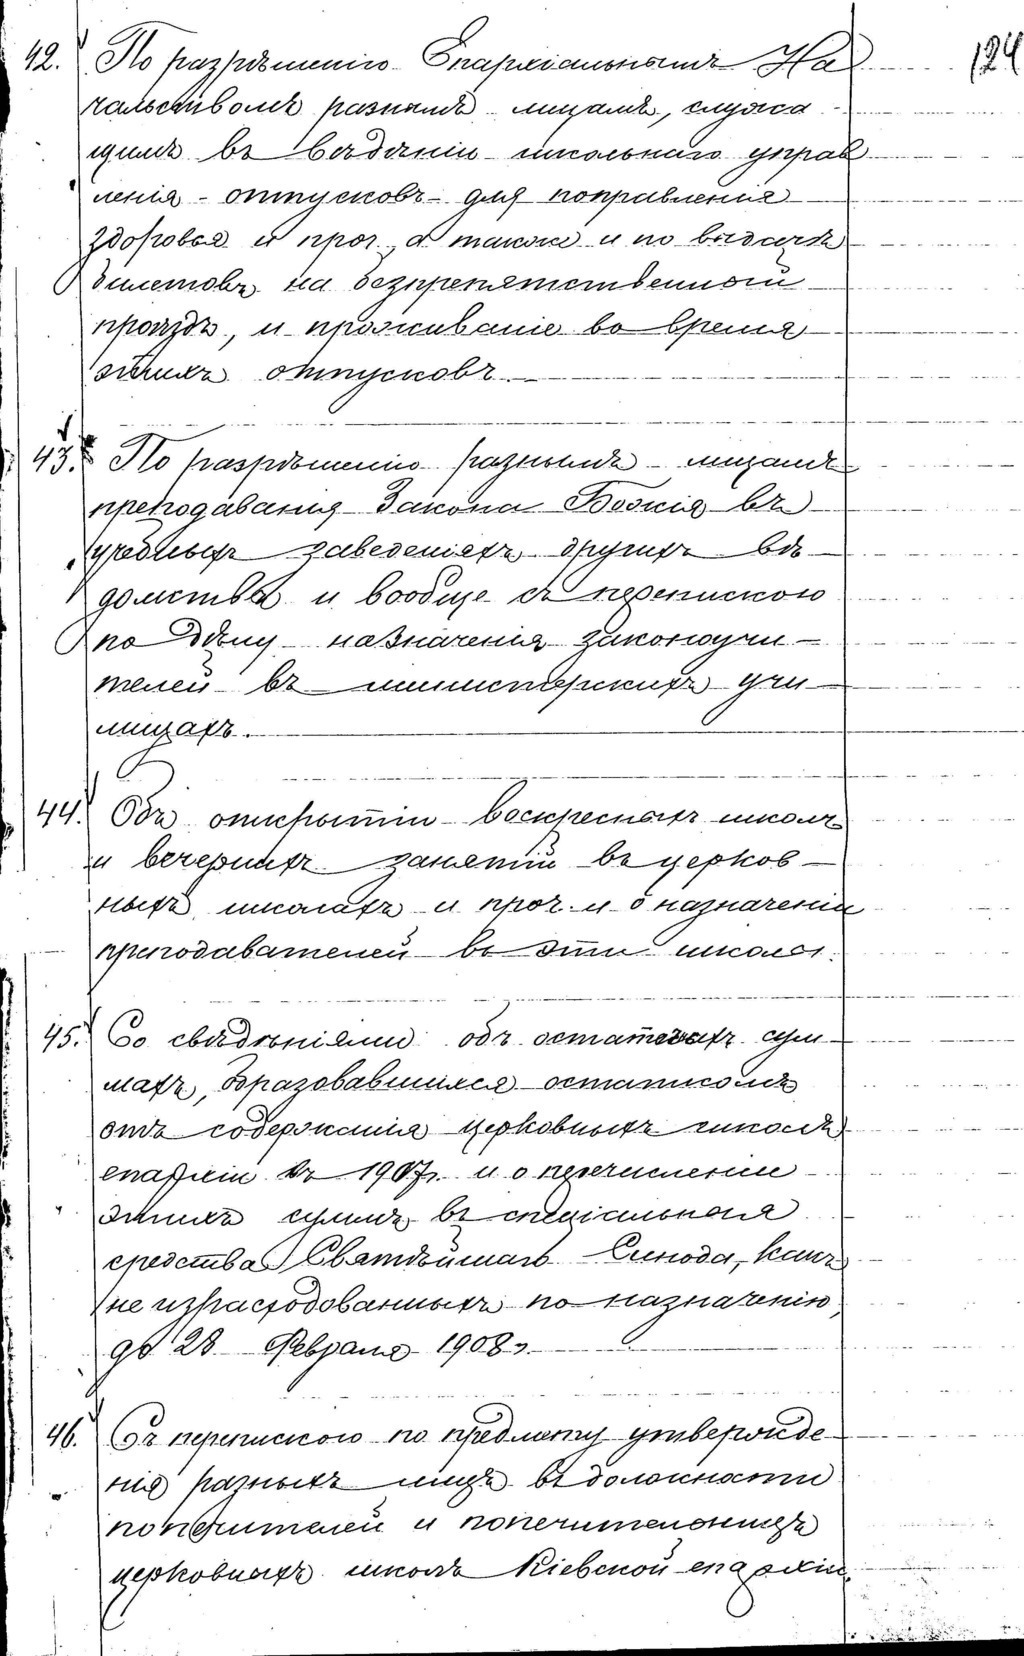 124
42. По разрѣшенію Епархіальнымъ На
чальствомъ разнымъ лицамъ, служа
щимъ въ вѣдѣніи школьнаго управ
ленія - отпусковъ - для поправленія
здоровья и проч., а также и по выдачѣ
билетовъ на безпрепятственный
проѣздъ, и проживаніе во время
этихъ отпусковъ.
43. По разрѣшенію разнымъ лицамъ
преподаванія Закона Божія въ
учебныхъ заведеніяхъ другихъ вѣ
домствъ и вообще съ перепискою
по дѣлу назначенія законоучи-
телей въ министерскихъ учи
лищахъ.
44. Объ открытіи воскресныхъ школъ
и вечернихъ занятій въ церков-
ныхъ школахъ и проч. и о назначеніи
преподавателей въ эти школы.
45. Со свѣдѣніями объ остаткахъ сум
махъ, образовавшихся остаткомъ
отъ содержанія церковныхъ школъ
епархіи въ 1907 г. и о перечисленіи
этихъ суммъ въ спеціальныя
средства Святѣйшаго Синода, какъ
не израсходованныхъ по назначенію,
до 28 Февраля 1908 г.
46. Съ перепискою по предмету утвержде
нія разныхъ лицъ въ должности
попечителей и попечительницъ
церковныхъ школъ Кіевской епархіи.